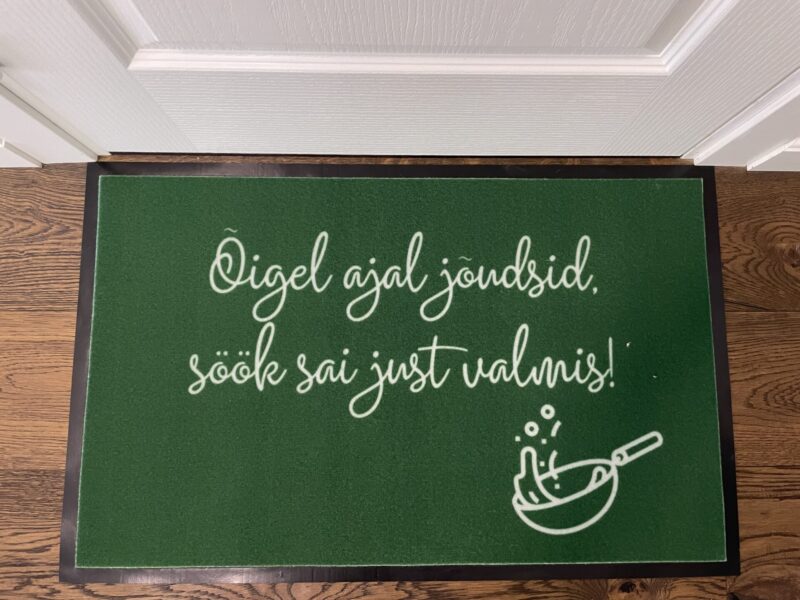 Õigel ajal jõudsid,
söök sai just valmis!